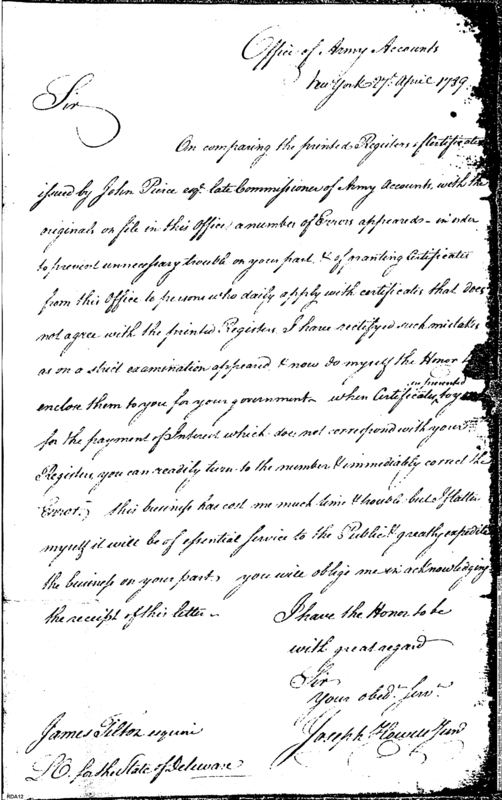 Office of Army Accounts
New York 27th April 1789
Sir
On comparing the printed Registers of Certificates
issued by John Pierce esqr. late Commissioner of Army Accounts, with the
originals on file in this Office, a number of Errors appeared – in order
to prevent unnecessary trouble on your part, & of granting Certificates
from this Office to persons who daily apply with certificates that does
not agree with the printed Registers, I have rectifyed such mistakes
as on a strict examination appeared & now do myself the Honor to
enclose them to you for your government – when Certificates are presented to you
for the payment of Interest which does not correspond with your
Registers, you can readily turn to the number & immediately correct the
Error. this business has cost me much time & trouble but I flatter
myself it will be of essential service to the Public & greatly expedite
the business on your part, you will oblige me in acknowledging
the receipt of this letter –
I have the Honor to be
with great regard
Sir
Your obedt. Servt.
Joseph Howell Junr
James Tilton esquire
for the State of Delaware
RDA12